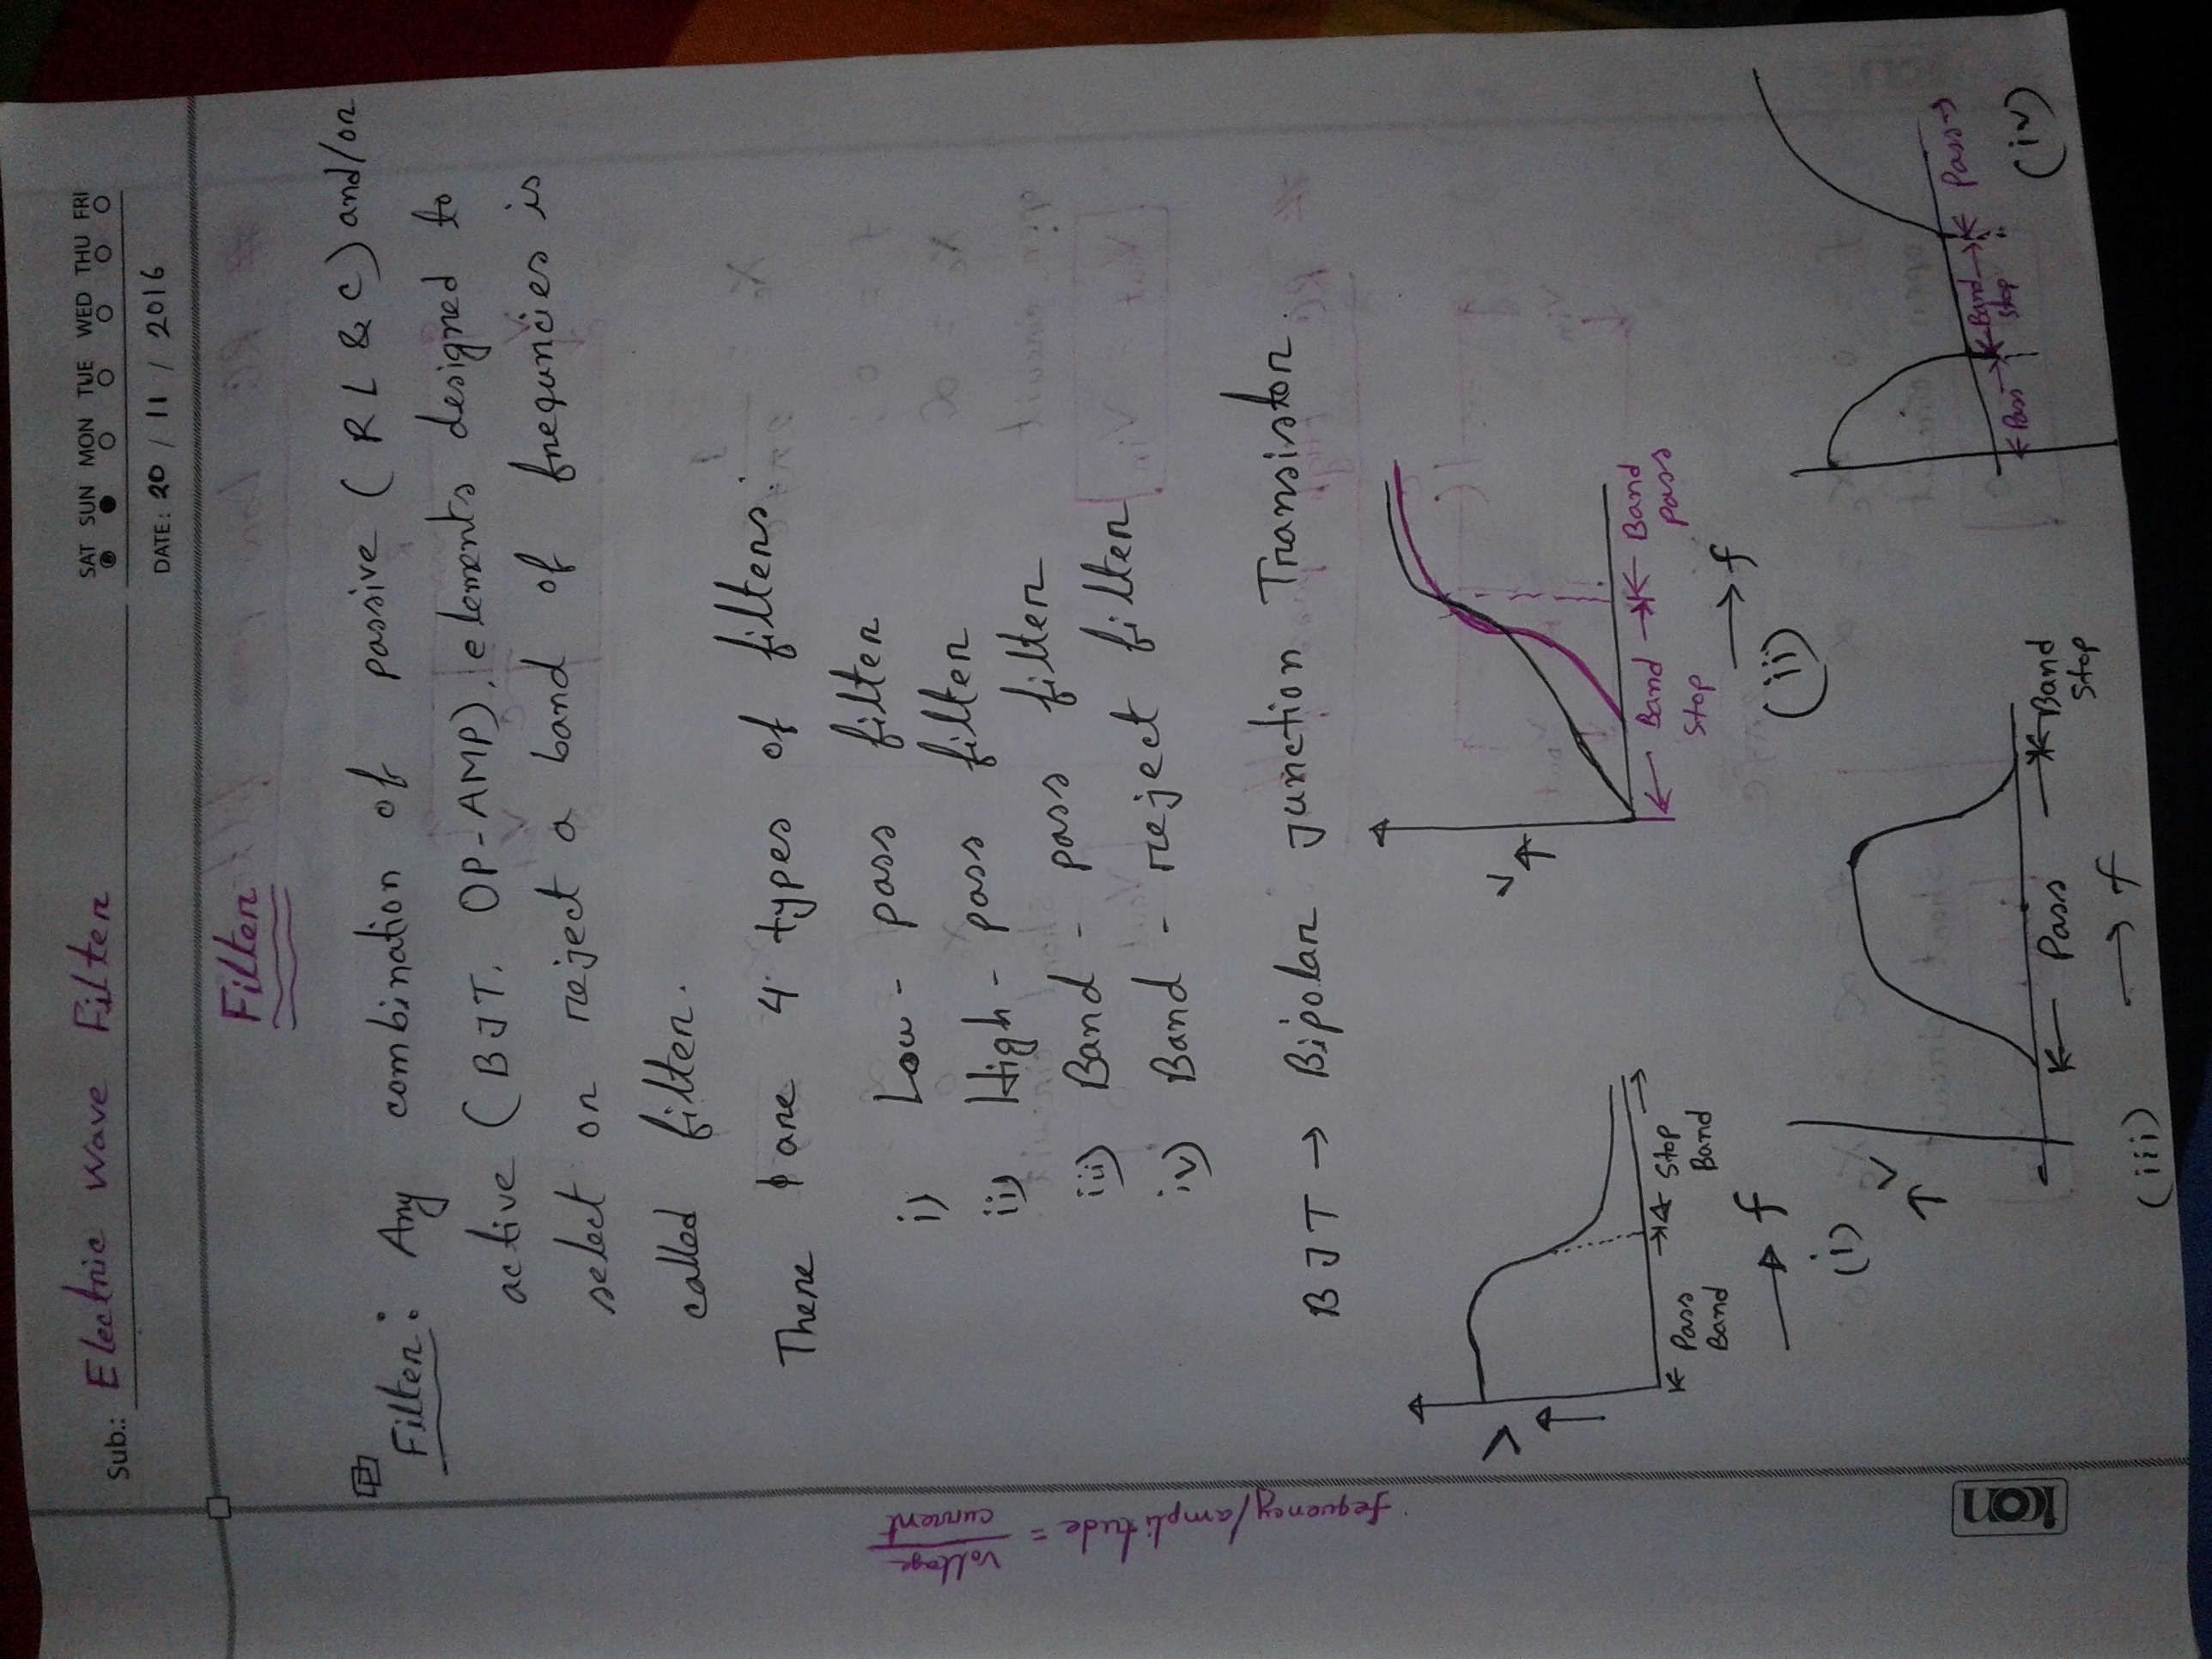 Sub.: Electric Wave Filter
SAT SUN MON TUE WED THU FRI
DATE: 20 / 11 / 2016
Filter
Filter: Any combination of passive (R L & C) and/or
active (BJT, OP-AMP), elements designed to
select or reject a band of frequncies is
called filter.
There are 4 types of filters:
i) Low - pass filter
ii) High - pass filter
iii) Band - pass filter
iv) Band - reject filter
BJT → Bipolar Junction Transistor.
fequency/amplitude = voltage / current
V
← Pass Band →
← Stop Band
→ f
(i)
V
← Band Stop →
← Band pass
→ f
(ii)
V
← Pass →
← Band Stop
→ f
(iii)
← Pass →
← Band Stop →
← Pass →
(iv)
icon